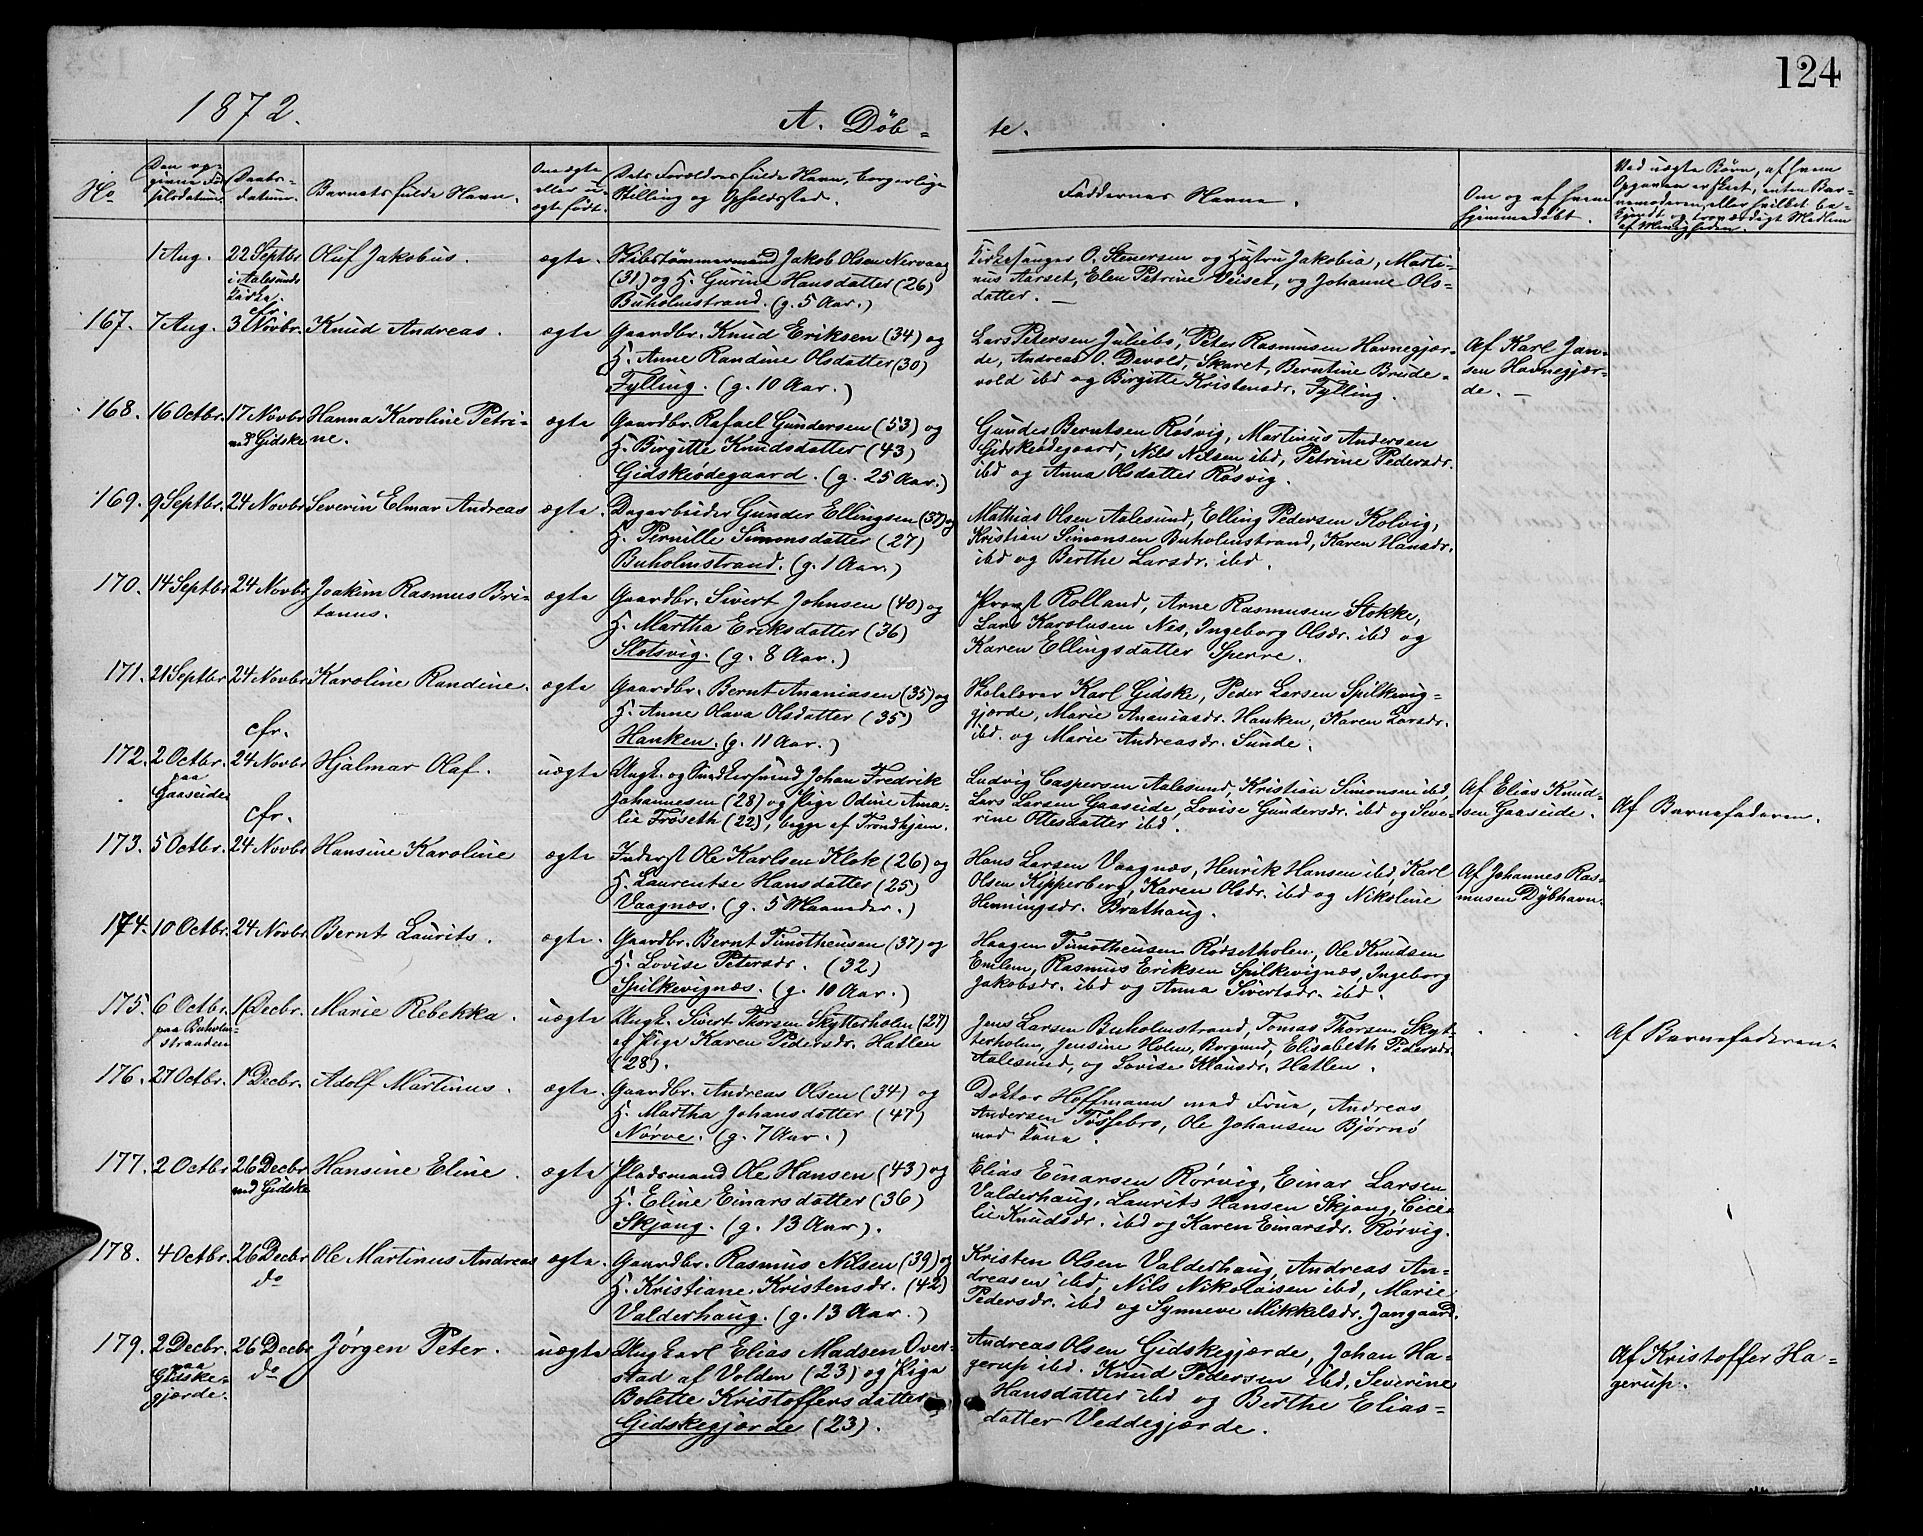 124
1872.
A. Döb-
te.
No
Den op-
givne Fød-
selsdatum.
Daabs-
datum.
Barnets fulde Navn.
Om ægte
eller u-
ægte født.
Dets Forældres fulde Navn, borgerlige
Stilling og Opholdssted.
Faddernes Navne.
Om og af hvem
hjemmedøbt.
Ved uægte Børn, af hvem
Opgaven er skeet, enten Bar-
nemoderen, eller hvilket be-
kjendt og troværdigt Medlem
af Menigheden.
1 Aug.
22 Septbr
i Aalesunds
Kirke.
Oluf Jakobus.
ægte
Skibstømmermand Jakob Olsen Nervaag
(31) og H. Gurine Hansdatter (26)
Buholmstrand. (g. 5 Aar.)
Kirkesanger O. Stenersen og Hustru Jakobia, Marti-
nus Aarset, Elen Petrine Veiset, og Johanne Ols-
datter. —
167.
7 Aug.
cfr.
3 Novbr.
Knud Andreas.
ægte
Gaardbr. Knud Eriksen (34) og
H. Anne Randine Olsdatter (30)
Fylling. (g. 10 Aar.)
Lars Petersen Juliebø, Peter Rasmusen Havnegjær-
de, Andreas O. Devold, Skaret, Berntine Brude-
vold ibd og Birgitte Kristensdr. Fylling.
Af Karl Jan-
sen Havnegjær-
de. —
168.
16 Octbr.
17 Novbr
ved Gidske
Hanna Karoline Petri-
ne.
ægte
Gaardbr. Rafael Gundersen (53) og
H. Birgitte Knudsdatter (43)
Gidskeødegaard. (g. 25 Aar.)
Gunder Berntsen Røsvig, Martinus Andersen
Gidskeødegaard, Nils Nilsen ibd, Petrine Pedersdr.
ibd og Anna Olsdatter Røsvig.
169.
9 Septbr.
24 Novbr
Severin Elmar Andreas
ægte
Dagarbeider Gunder Ellingsen (37) og
H. Pernille Simonsdatter (27)
Buholmstrand. (g. 1 Aar.)
Mathias Olsen Aalesund, Elling Pedersen Kolvig,
Kristian Simonsen Buholmstrand, Karen Hansdr.
ibd og Berthe Larsdr. ibd.
170.
14 Septbr
24 Novbr
Joakim Rasmus Bri-
tanus.
ægte
Gaardbr. Sivert Johnsen (40) og
H. Martha Eriksdatter (36)
Slotsvig. (g. 8 Aar.)
Provst Rolland, Arne Rasmusen Stokke,
Lars Karolusen Nes, Ingeborg Olsdr. ibd og
Karen Ellingsdatter Sperre.
171.
21 Septbr
24 Novbr
Karoline Randine.
ægte
Gaardbr. Bernt Ananiasen (35) og
H. Anne Olava Olsdatter (35)
Hanken. (g. 11 Aar.)
Skolelærer Karl Gidske, Peder Larsen Spilkevig-
gjærde, Marie Ananiasdr. Hanken, Karen Larsdr.
ibd. og Marie Andreasdr. Sunde.
172.
2 Octbr.
paa
Gaaseide
cfr.
24 Novbr
Hjalmar Olaf.
uægte
Ungk. og Snedkersvend Johan Fredrik
Johannesen (28) og Pige Odine Ama-
lie Frøseth (22), begge af Trondhjem.
Ludvig Caspersen Aalesund, Kristian Simonsen ibd,
Lars Larsen Gaaseide, Lovise Gundersdr. ibd og Seve-
rine Ottesdatter ibd.
Af Elias Knud-
sen Gaaseide.
Af Barnefaderen.
173.
5 Octbr.
cfr.
24 Novbr
Hansine Karoline
ægte
Inderst Ole Karlsen Klok (26) og
H. Laurentse Hansdatter (25)
Vaagnæs. (g. 5 Maaneder.)
Hans Larsen Vaagnæs, Henrik Hansen ibd, Karl
Olsen Kipperberg, Karen Olsdr. ibd og Nikoline
Henningsdr. Brathaug.
Af Johannes Ras-
musen Dybhavn.
174.
10 Octbr.
24 Novbr
Bernt Laurits.
ægte.
Gaardbr. Bernt Timotheusen (37) og
H. Lovise Petersdr. (32)
Spilkevignæs. (g. 10 Aar.)
Haagen Timotheusen Rødsetholen, Ole Knudsen
Emlem, Rasmus Eriksen Spilkevignæs, Ingeborg
Jakobsdr. ibd og Anna Sivertsdr. ibd.
175.
6 Octbr.
paa Buholm-
stranden
1 Decbr.
Marie Rebekka.
uægte
Ungk. Sivert Thorsen Skytterholm (27)
og Pige Karen Pedersdr. Hatlen
(28).
Jens Larsen Buholmstrand, Tomas Thorsen Skyt-
terholm, Jensine Holm, Borgund, Elisabeth Pedersdr.
Aalesund, og Lovise Klausdr. Hatlen.
Af Barnefaderen.
176.
27 Octbr.
1 Decbr.
Adolf Martinus.
ægte.
Gaardbr. Andreas Olsen (34) og
H. Martha Johansdatter (47)
Nørve. (g. 7 Aar.)
Doktor Hoffmann med Frue, Andreas
Andersen Fossebro, Ole Johansen Bjørnø
med Kone.
177.
2 Octbr
26 Decbr
ved Gidske
Hansine Eline.
ægte
Pladsmand Ole Hansen (43) og
H. Eline Einarsdatter (36)
Skjong. (g. 13 Aar).
Elias Einarsen Rørvig, Einar Larsen
Valderhaug, Laurits Hansen Skjong, Ceci-
lie Knudsdr. ibd og Karen Einarsdr. Rørvig.
178.
4 Octbr.
26 Decbr
do
Ole Martinus Andreas
ægte.
Gaardbr. Rasmus Nilsen (39) og
H. Kristiane Kristensdr. (42)
Valderhaug. (g. 13 Aar.)
Kristen Olsen Valderhaug, Andreas An-
dreasen ibd, Nils Nikolaisen ibd, Marie
Pedersdr. ibd og Synneve Mikkelsdr. Jangaard.
179.
2 Decbr.
paa
Gidske-
gjærde.
26 Decbr
do
Jørgen Peter.
uægte
Ungkarl Elias Madsen Over-
stad af Volden (23) og Pige
Bolette Kristoffersdatter
Gidskegjærde (23).
Andreas Olsen Gidskegjærde, Johan Ha-
gerup ibd. Knud Pedersen ibd, Severine
Hansdatter ibd og Berthe Elias-
datter Veddegjærde.
Af Kristoffer Ha-
gerup.